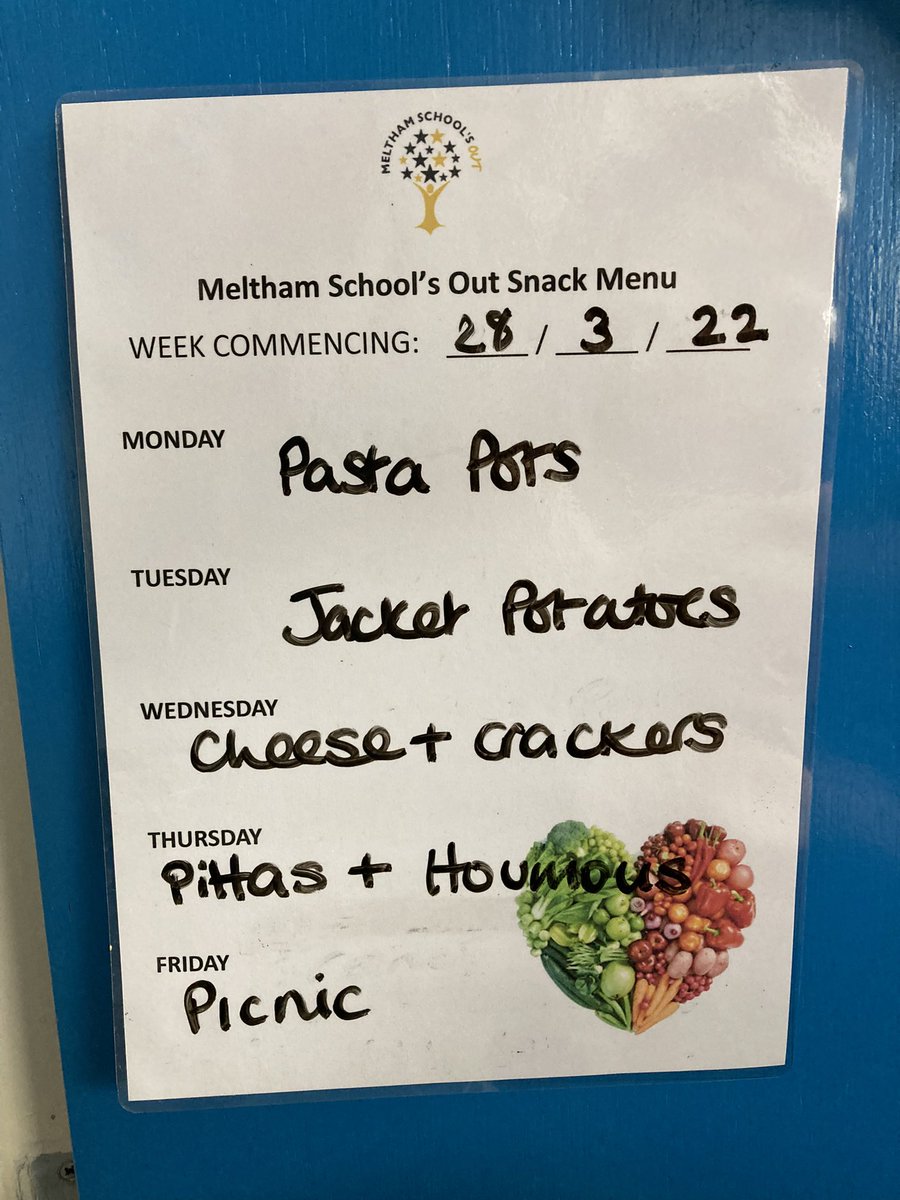 MELTHAM SCHOOL'S OUT
Meltham School's Out Snack Menu
WEEK COMMENCING: 28 / 3 / 22
MONDAY
Pasta Pots
TUESDAY
Jacket Potatoes
WEDNESDAY
Cheese + crackers
THURSDAY
Pittas + Houmous
FRIDAY
Picnic